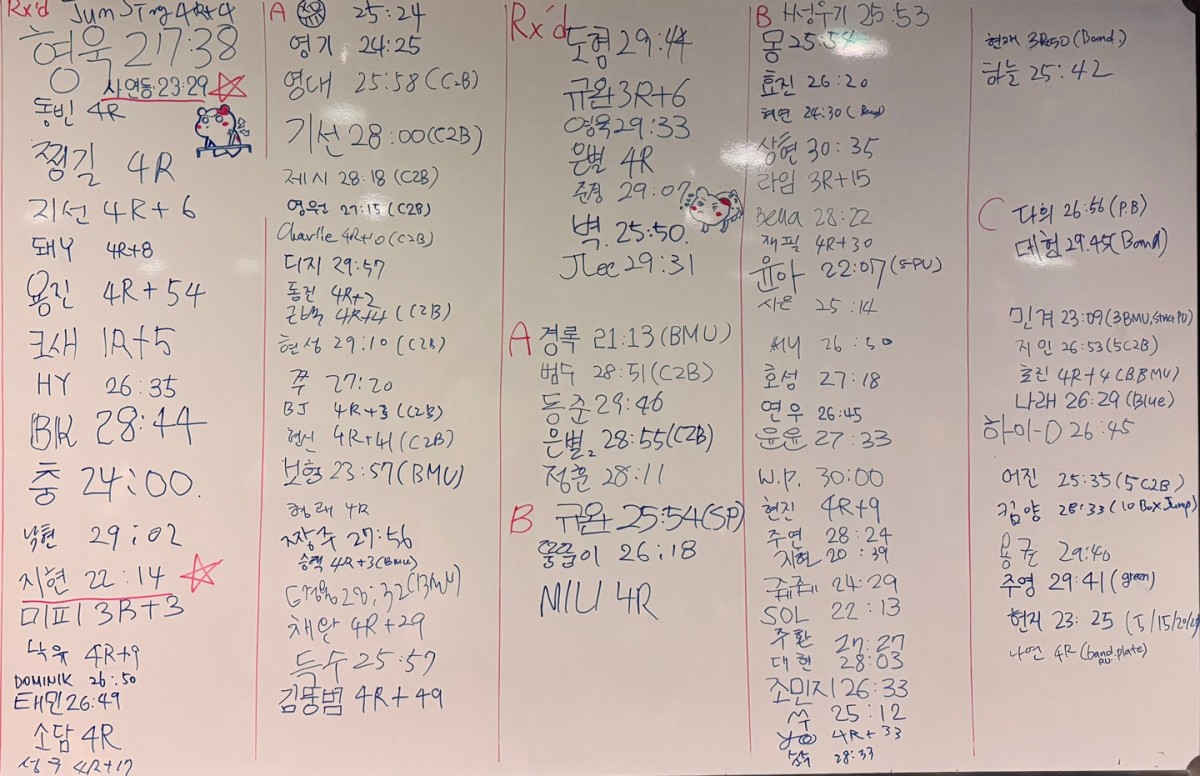 Rx'd Jum STng 4R+4
형욱 27:38
사연동 23:29
동빈 4R
찡길 4R
지선 4R+6
돼Y 4R+8
용진 4R+54
코새 1R+5
HY 26:35
BK 28:44
충 24:00.
낙현 29:02
지현 22:14
미피 3R+3
낙욱 4R+9
DOMINIK 26:50
태민 26:49
소담 4R
성구 4R+17
A
25:24
영기 24:25
영대 25:58 (C2B)
기선 28:00 (C2B)
제시 28:18 (C2B)
영원 27:15 (C2B)
Charlie 4R+10 (C2B)
디지 29:57
동건 4R+2
근백 4R+4 (C2B)
현성 29:10 (C2B)
쭈 27:20
BJ 4R+3 (C2B)
현신 4R+41 (C2B)
보형 23:57 (BMU)
현래 4R
짜장수 27:56
승혁 4R+3 (BMU)
28:32 (BMU)
채완 4R+29
득수 25:57
김뭉범 4R+49
Rx'd
도형 29:44
규완 3R+6
영욱 29:33
은별 4R
준경 29:07
벽. 25:50.
JLee 29:31
A 경록 21:13 (BMU)
범수 28:51 (C2B)
동준 29:46
은별2 28:55 (C2B)
정훈 28:11
B 규완 25:54 (SP)
쭐쭐이 26:18
MIU 4R
B 서성우기 25:53
몽 25:54
효진 26:20
혁연 24:30 (Band)
상현 30:35
라임 3R+15
Bella 28:22
재필 4R+30
윤아 22:07 (5-PU)
시온 25:14
써니 26:50
호성 27:18
연우 26:45
윤윤 27:33
W.P. 30:00
현진 4R+9
주연 28:24
지현 20:39
쥬쥬 24:29
SOL 22:13
주환 27:27
대현 28:03
조민지 26:33
쑤 25:12
4R+33
28:33
현재 3R+50 (Band.)
하늘 25:42
C 다희 26:56 (P.B)
대험 29.45 (Band)
민겨 23:09 (3BMU, Strict PU)
지인 26:53 (5C2B)
효진 4R+4 (B.BMU)
나래 26:29 (Blue)
하이-O 26:45
어진 25:35 (5C2B)
킴양 28:33 (10 Box Jump)
용균 29:40
주영 29:41 (green)
현지 23:25 (5/15/20/25
나연 4R (band.plate)
PU